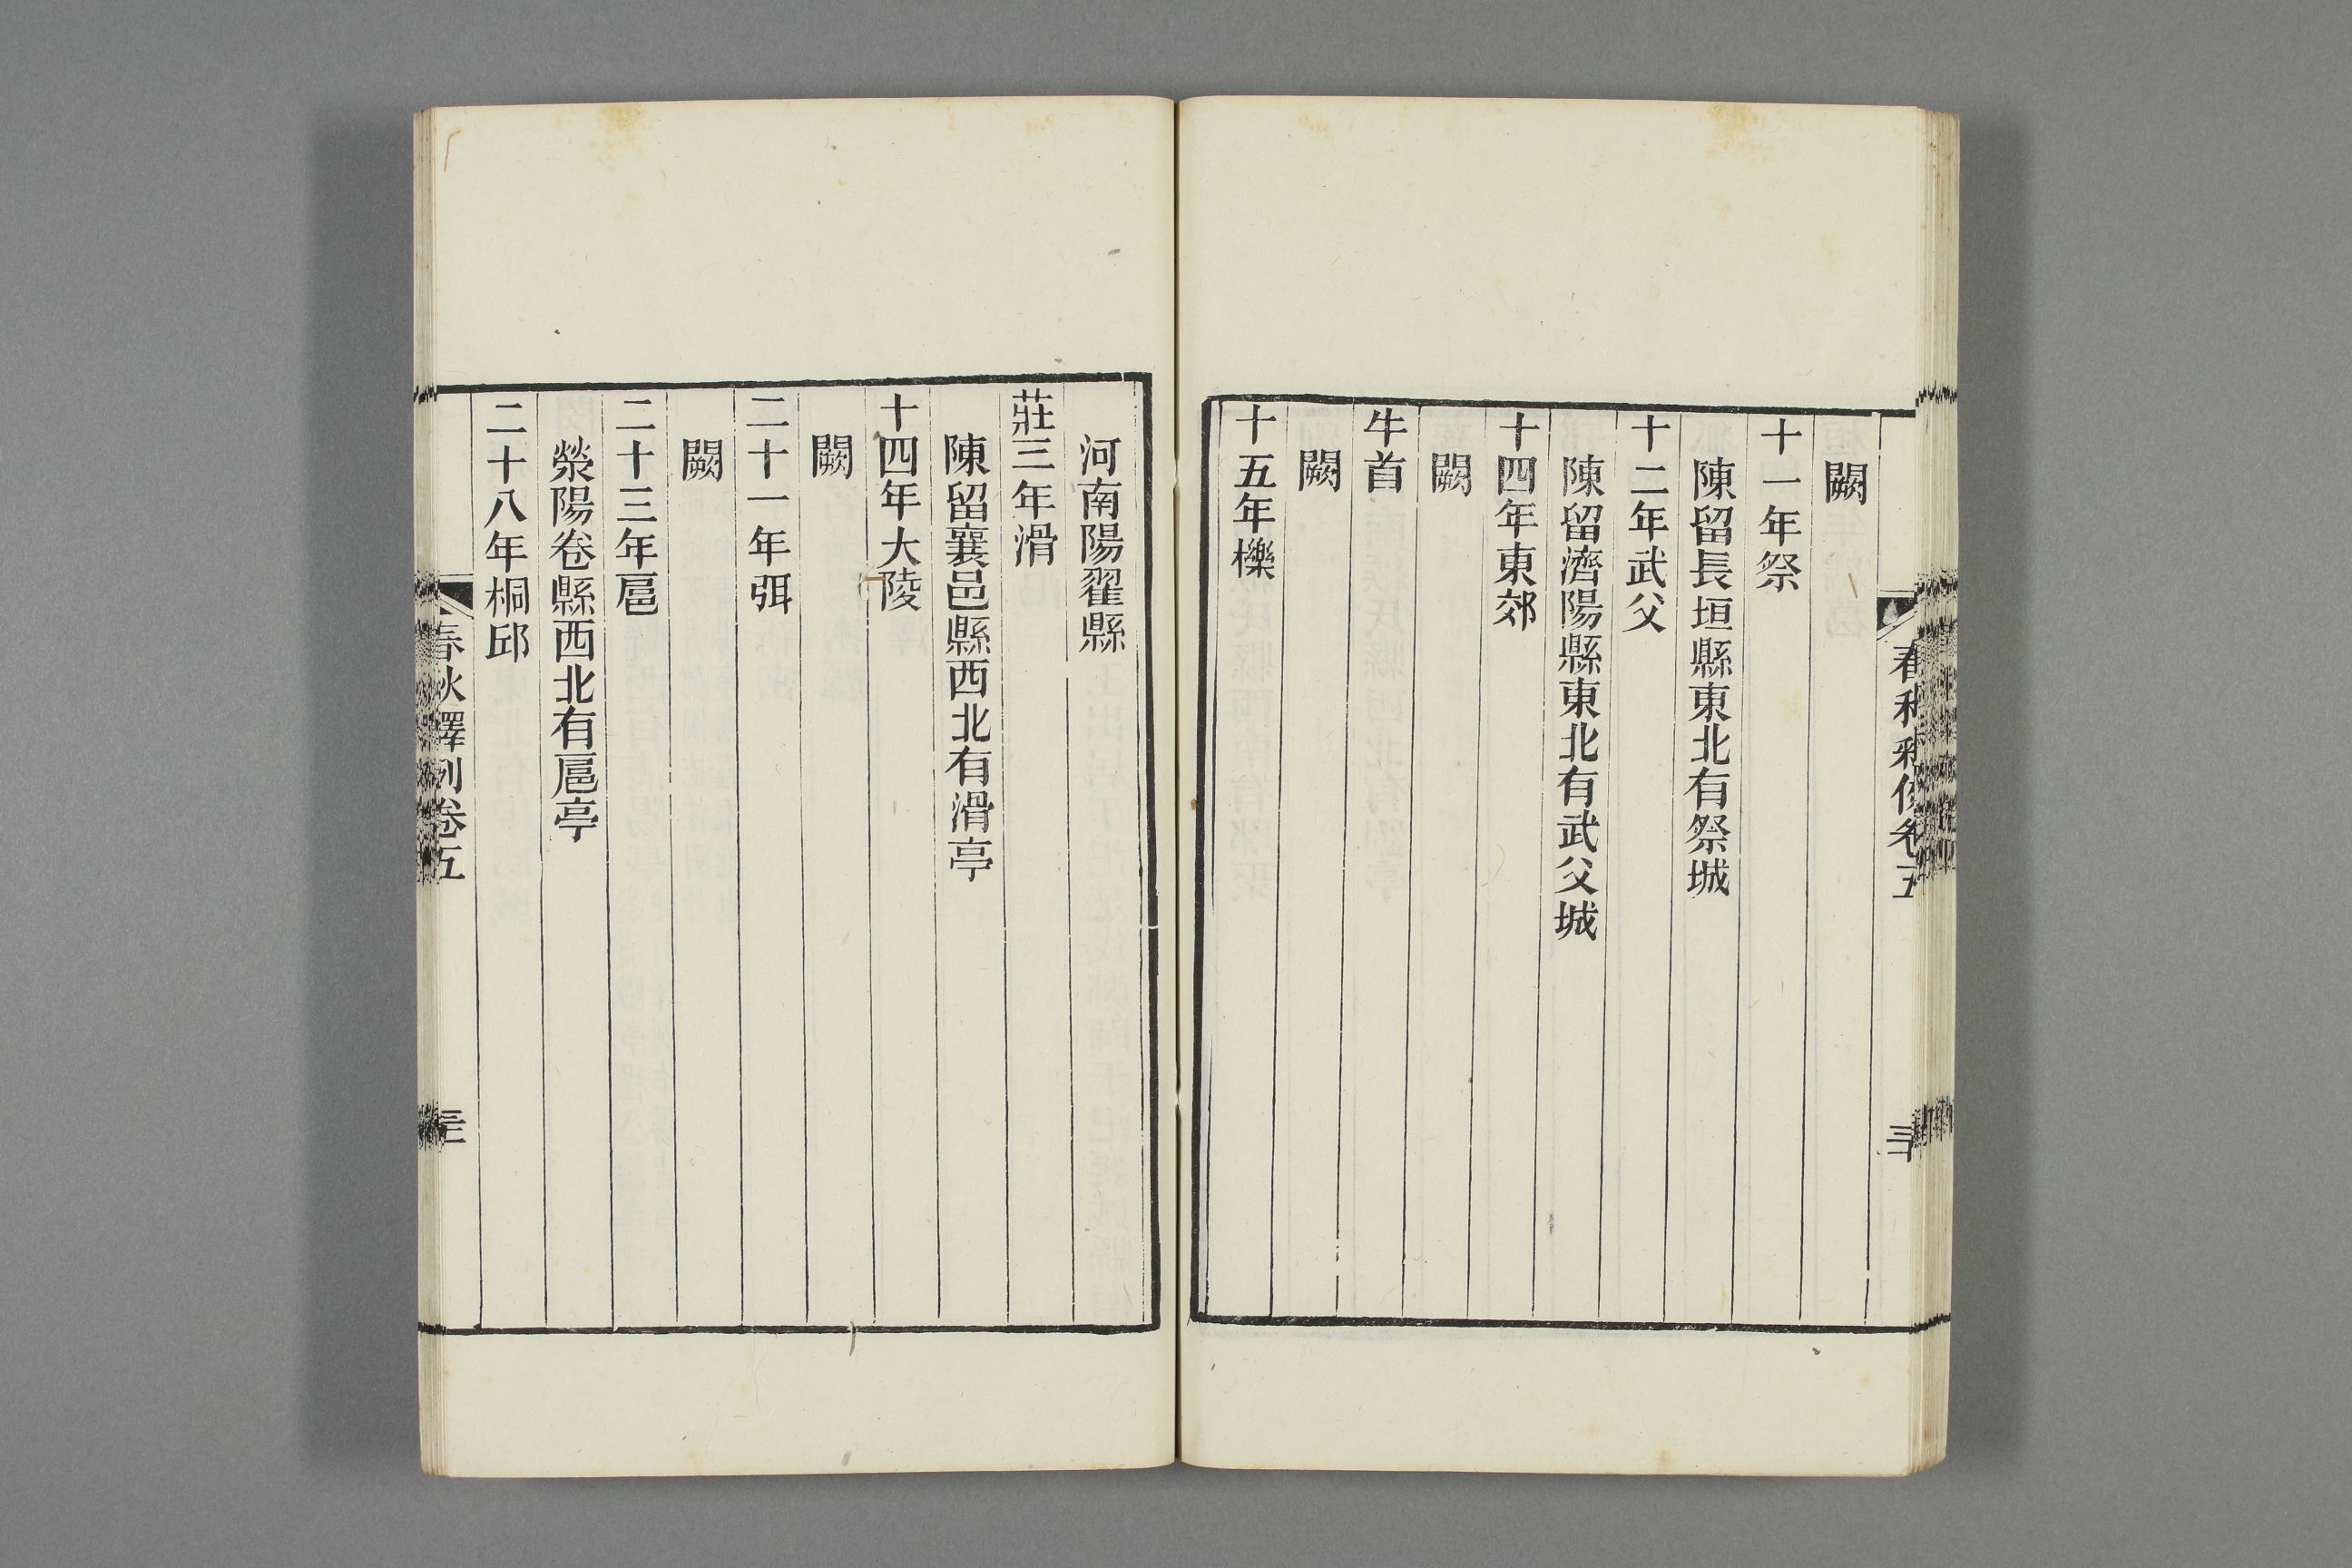 春秋釋例卷五
闕
十一年祭
陳留長垣縣東北有祭城
十二年武父
陳留濟陽縣東北有武父城
十四年東郊
闕
牛首
闕
十五年櫟
河南陽翟縣
莊三年滑
陳留襄邑縣西北有滑亭
十四年大陵
闕
二十一年弭
闕
二十三年扈
滎陽卷縣西北有扈亭
二十八年桐邱
春秋釋例卷五